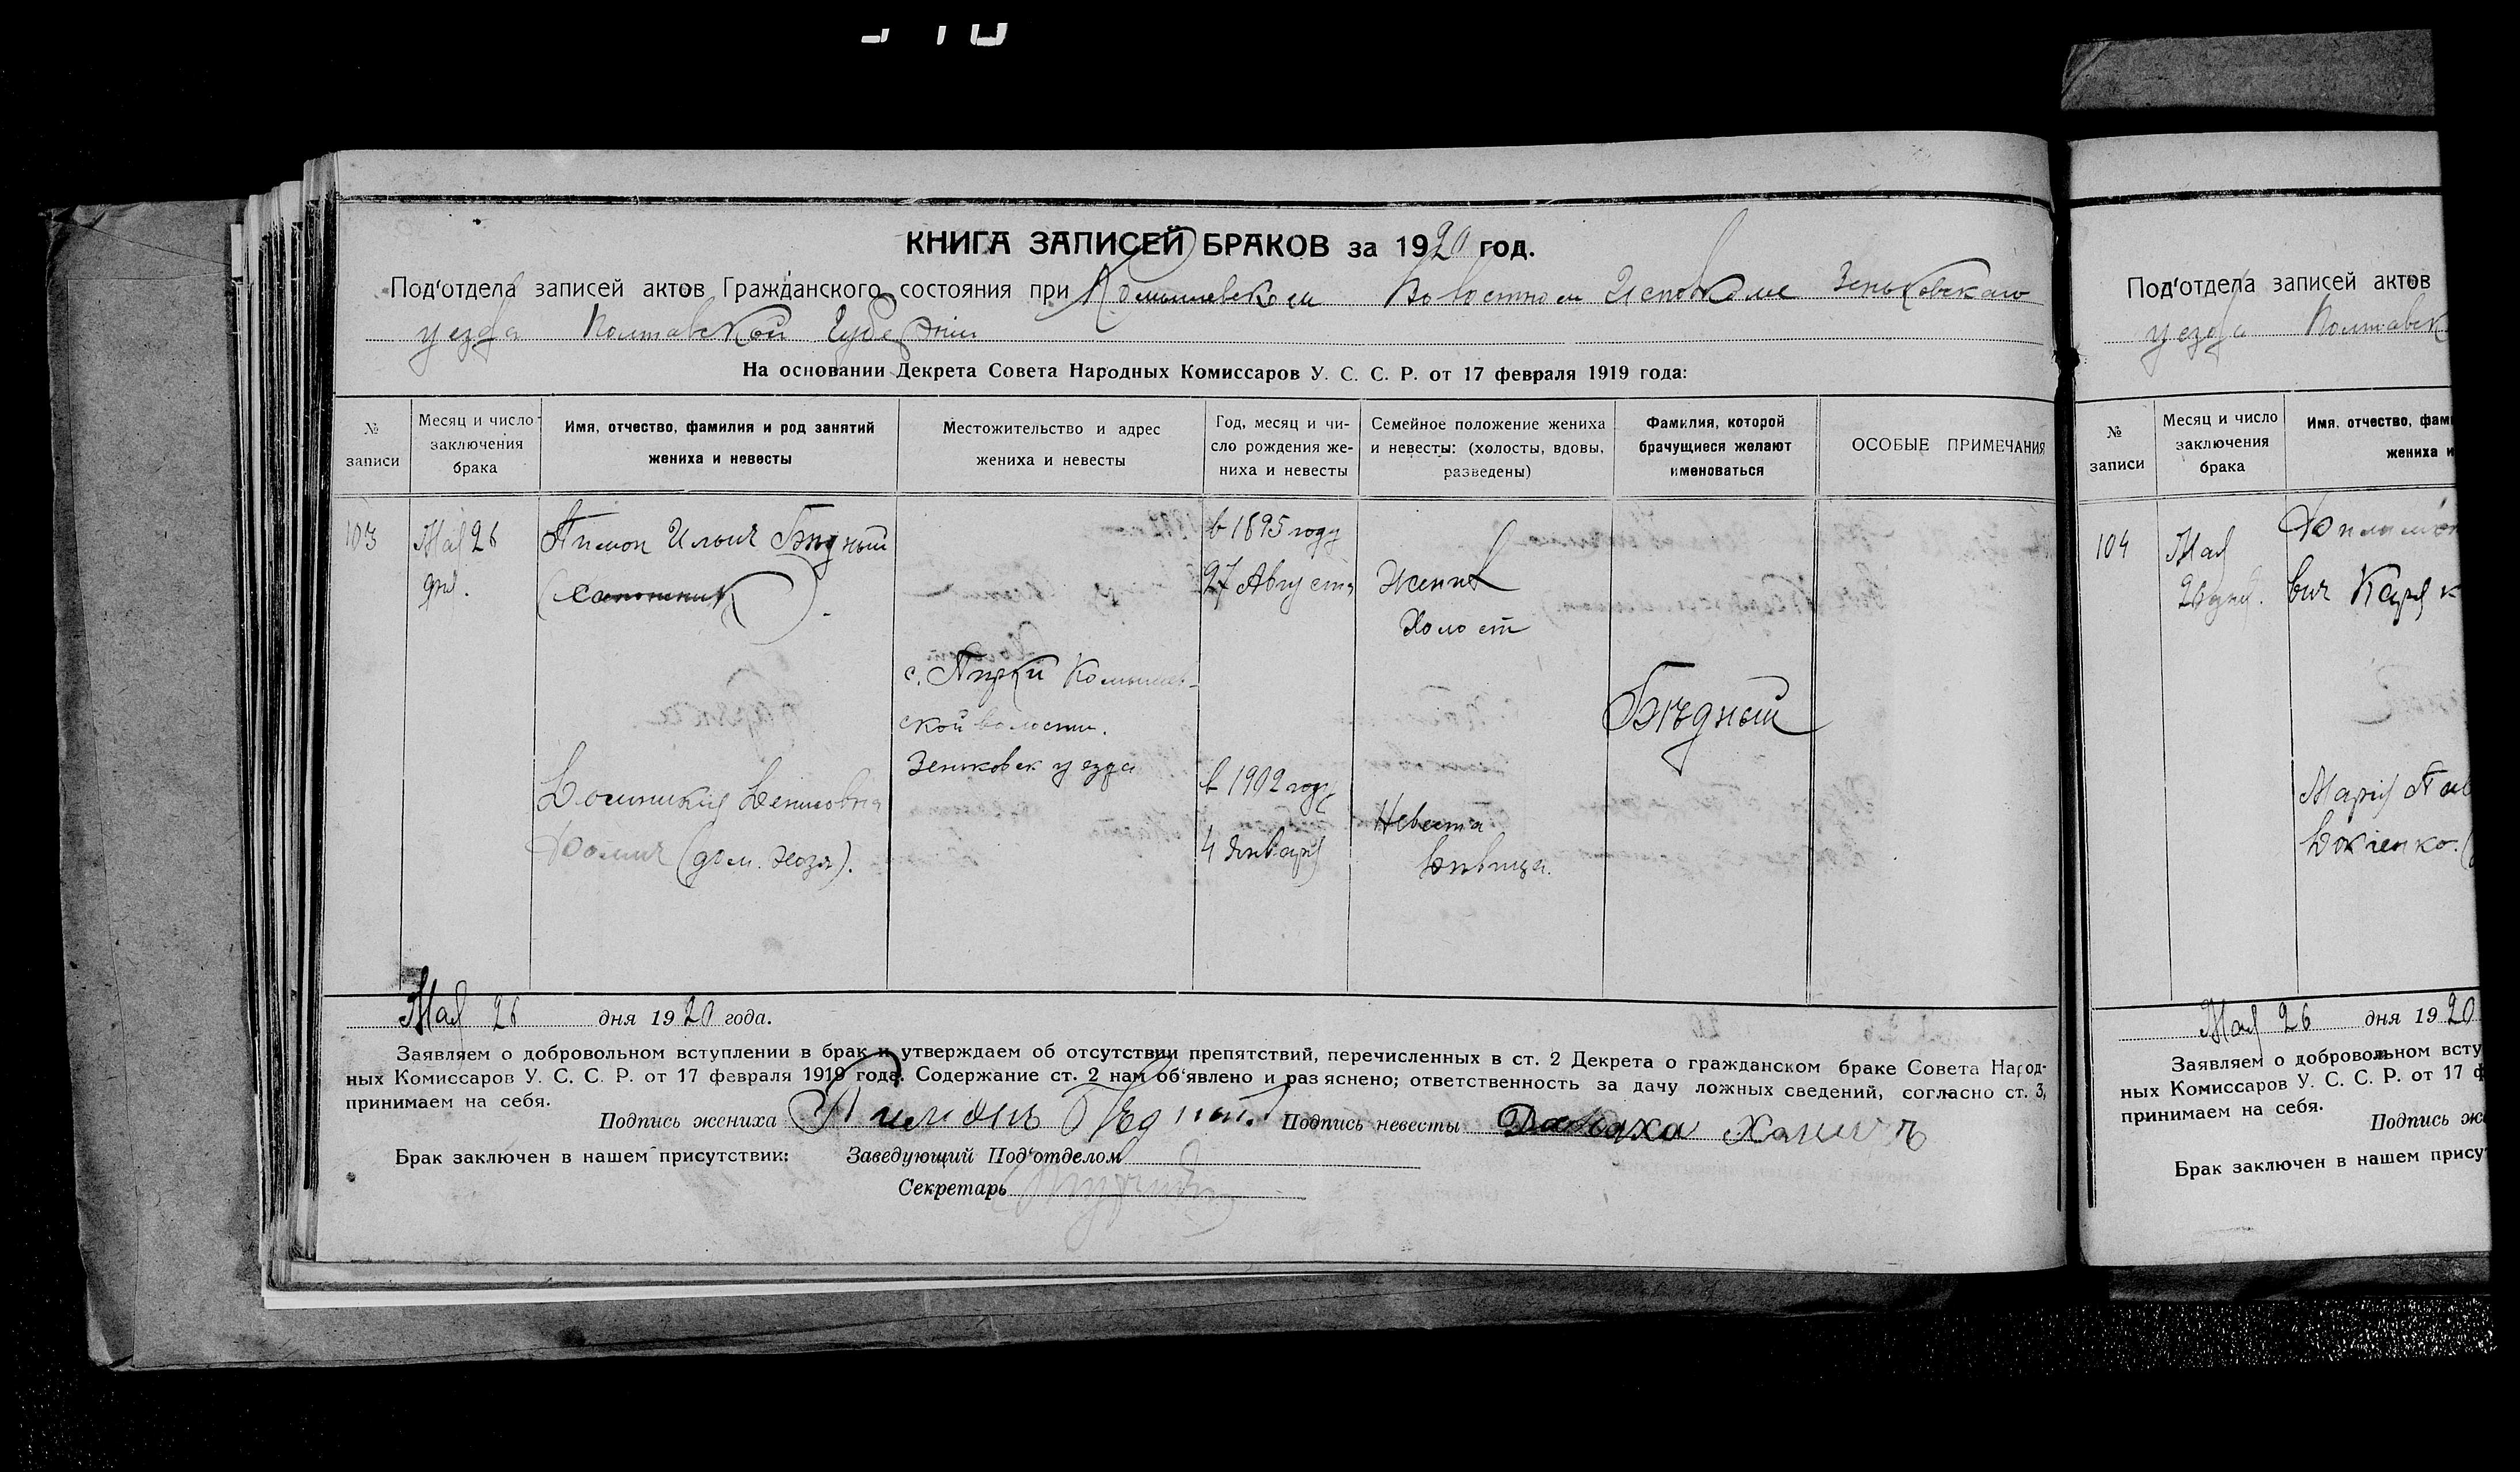 КНИГА ЗАПИСЕЙ БРАКОВ за 1920 год.
Под'отдела записей актов Гражданского состояния при Комышевском Волостном Исполкоме Зеньковскаго
уезда Полтавской Губернии
На основании Декрета Совета Народных Комиссаров У. С. С. Р. от 17 февраля 1919 года:
№ записи
Месяц и число заключения брака
Имя, отчество, фамилия и род занятий жениха и невесты
Местожительство и адрес жениха и невесты
Год, месяц и число рождения жениха и невесты
Семейное положение жениха и невесты: (холосты, вдовы, разведены)
Фамилия, которой брачущиеся желают именоваться
ОСОБЫЕ ПРИМЕЧАНИЯ
103
Мая 26
дня.
Пимон Ильич Бѣдный
с. Пирки Комышев-
ской волости.
Зеньковск уезда
в 1895 году
27 Августа
Жених
Холост
Бѣдный
Денисовна
Хомич (дом. хозя).
в 1902 году
4 Января
Невеста
Дѣвица.
Мая 26 дня 1920 года.
Заявляем о добровольном вступлении в брак и утверждаем об отсутствии препятствий, перечисленных в ст. 2 Декрета о гражданском браке Совета Народ-
ных Комиссаров У. С. С. Р. от 17 февраля 1919 года. Содержание ст. 2 нам об'явлено и раз'яснено; ответственность за дачу ложных сведений, согласно ст. 3,
принимаем на себя.
Подпись жениха Пимонъ Бѣдный Подпись невесты
Брак заключен в нашем присутствии: Заведующий Под'отделом
Секретарь
Под'отдела записей актов
уезда Полтавск
№ записи
Месяц и число заключения брака
Имя, отчество, фам
жениха и
104
Мая
26 дня.
вич
Мария
Мая 26 дня 1920
Заявляем о добровольном всту
ных Комиссаров У. С. С. Р. от 17 ф
принимаем на себя.
Подпись же
Брак заключен в нашем прису